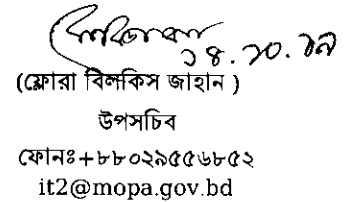 ১৪.১০.১৯
(ফ্লোরা বিলকিস জাহান )
উপসচিব
ফোনঃ+৮৮০২৯৫৫৬৮৫২
it2@mopa.gov.bd